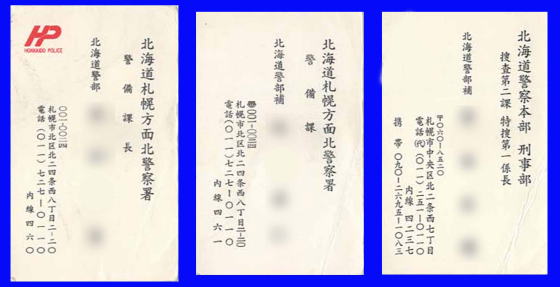 HP
HOKKAIDO POLICE
北海道札幌方面北警察署
警備課長
北海道警部
〒001-0024
札幌市北区北二四条西八丁目二-二〇
電話(〇一一)七二七-〇一一〇
内線四六〇
北海道札幌方面北警察署
警備課
北海道警部補
札幌市北区北二四条西八丁目二-二〇
電話(〇一一)七二七-〇一一〇
内線四六一
北海道警察本部 刑事部
捜査第二課 特捜第一係長
北海道警部補
〒〇六〇-八五二〇
札幌市中央区北二条西七丁目
電話(代)(〇一一)二五一-〇一一〇
内線四二三七
携帯〇九〇-二六九五-一〇八三